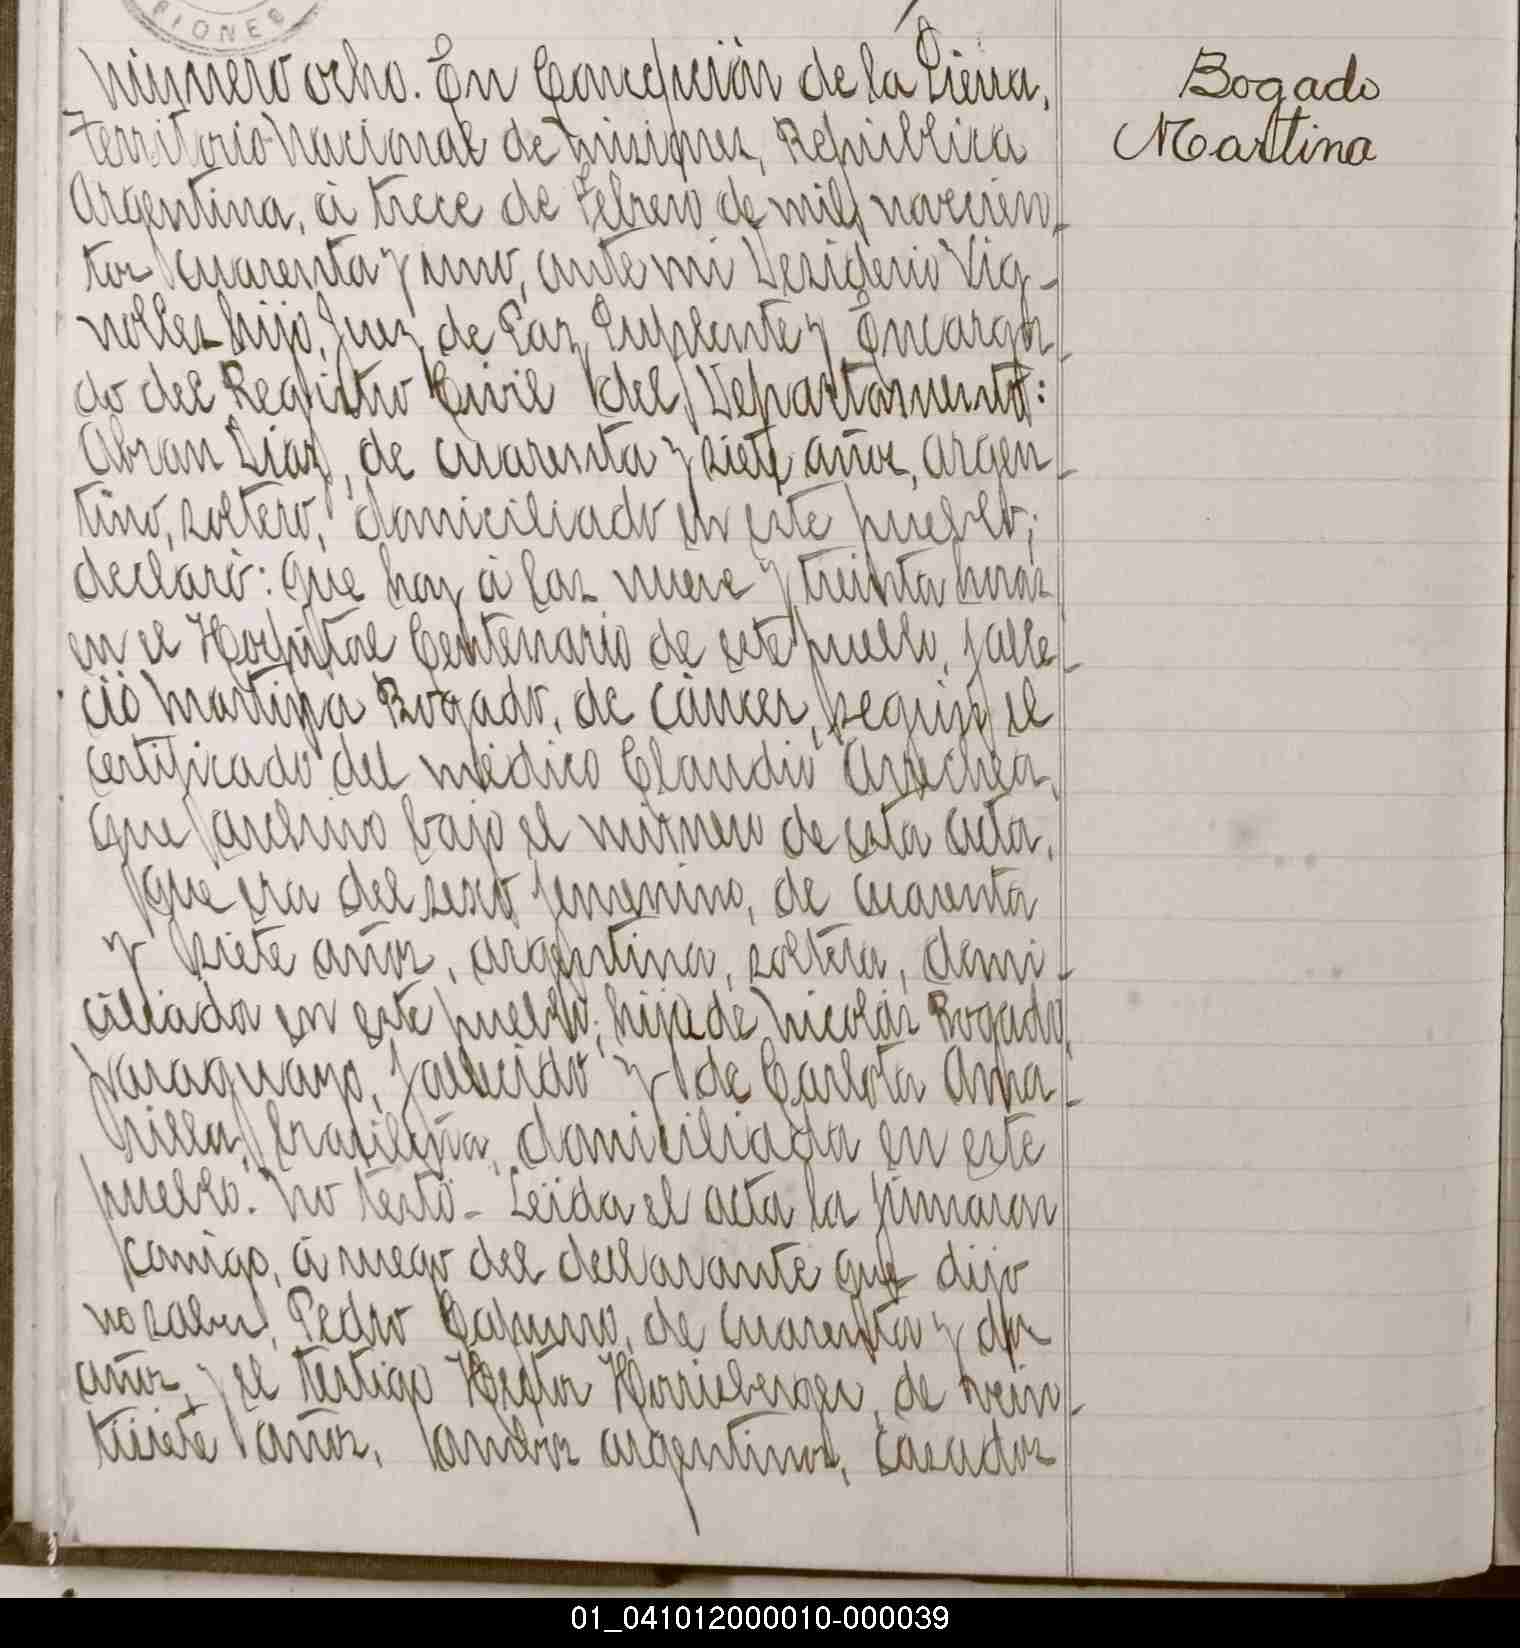 IONES
Número ocho. En Concepción de la Sierra,
Territorio Nacional de Misiones, República
Argentina, á trece de Febrero de mil novecien-
tos cuarenta y uno, ante mi Desiderio Vig-
nolles hijo, Juez de Paz Suplente y Encarga-
do del Registro Civil del Departamento:
Abran Diaz, de cuarenta y siete años, argen-
tino, soltero, domiciliado en este pueblo;
declaró: Que hoy á las nueve y treinta horas
en el Hospital Centenario de este pueblo, falle-
ció Martina Bogado, de cáncer, según el
certificado del médico Claudio Arrechea,
que archivo bajo el número de esta acta,
que era del sexo femenino, de cuarenta
y siete años, argentina, soltera, domi-
ciliada en este pueblo; hija de Nicolás Bogado,
paraguayo, fallecido y de Carlota Ama-
rilla, brasileña, domiciliada en este
pueblo. No testó - Leída el acta la firmaron
conmigo, á ruego del declarante que dijo
no saber, Pedro de cuarenta y dos
años, y el testigo Hector de vein-
tisiete años, ambos argentinos, casados
Bogado
Martina
01_041012000010-000039